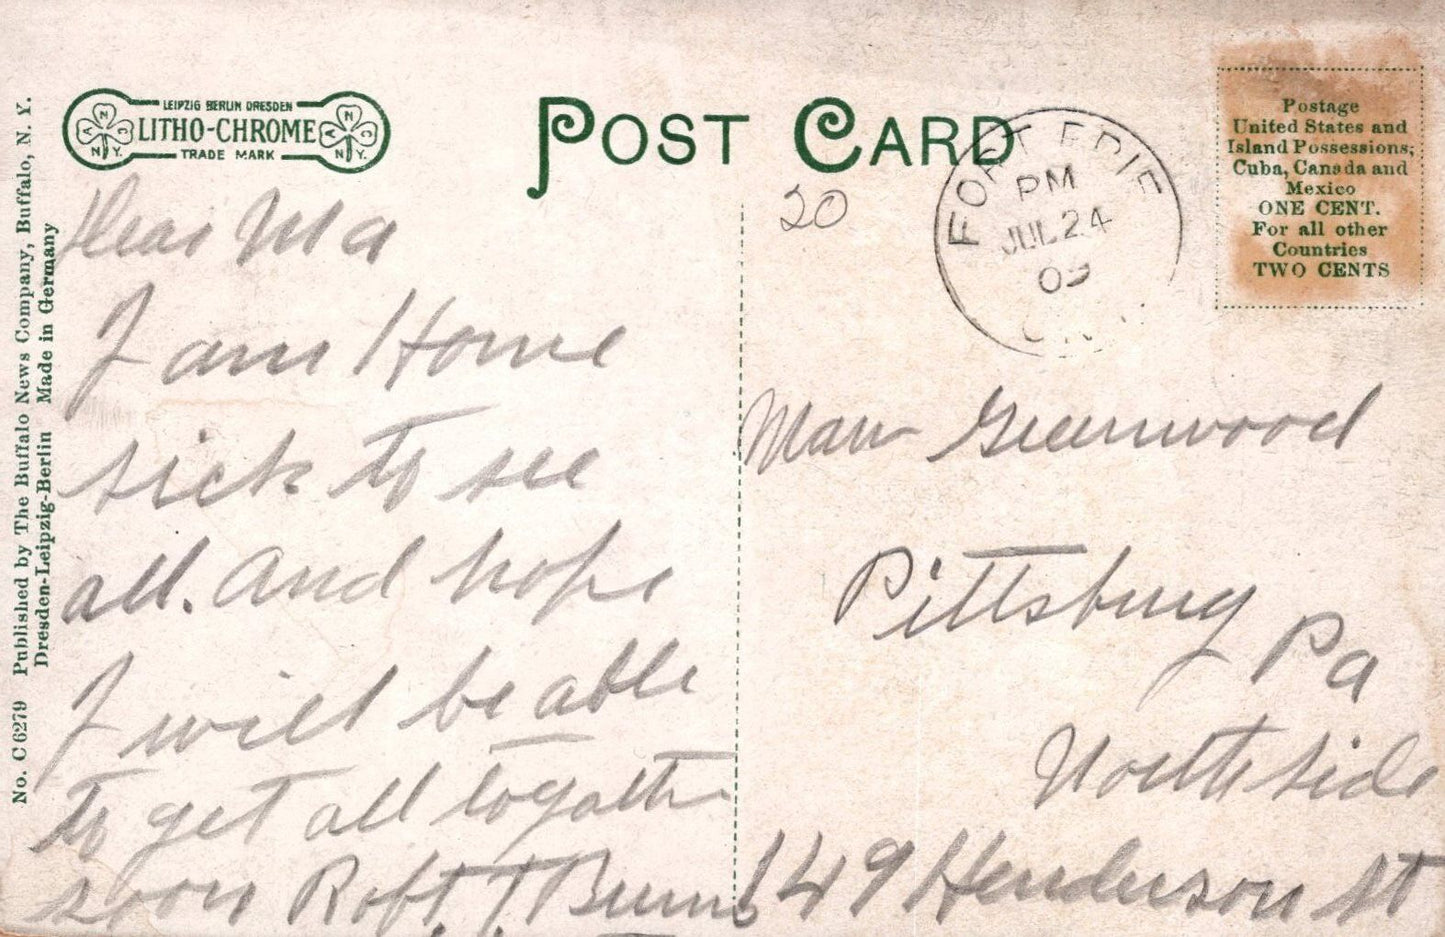 LEIPZIG BERLIN DRESDEN
LITHO-CHROME
TRADE MARK
N.Y.
N.Y.
POST CARD
No. C 6279 Published by The Buffalo News Company, Buffalo, N. Y.
Dresden-Leipzig-Berlin Made in Germany
Postage
United States and
Island Possessions;
Cuba, Canada and
Mexico
ONE CENT.
For all other
Countries
TWO CENTS
FORT ERIE
PM
JUL 24
09
20
Dear Ma
I am Home
sick to see
all. and hope
I will be able
to get all togath
soon Robt. T Burns
Greenwood
Pittsburg
Pa
North side
149 Henderson St